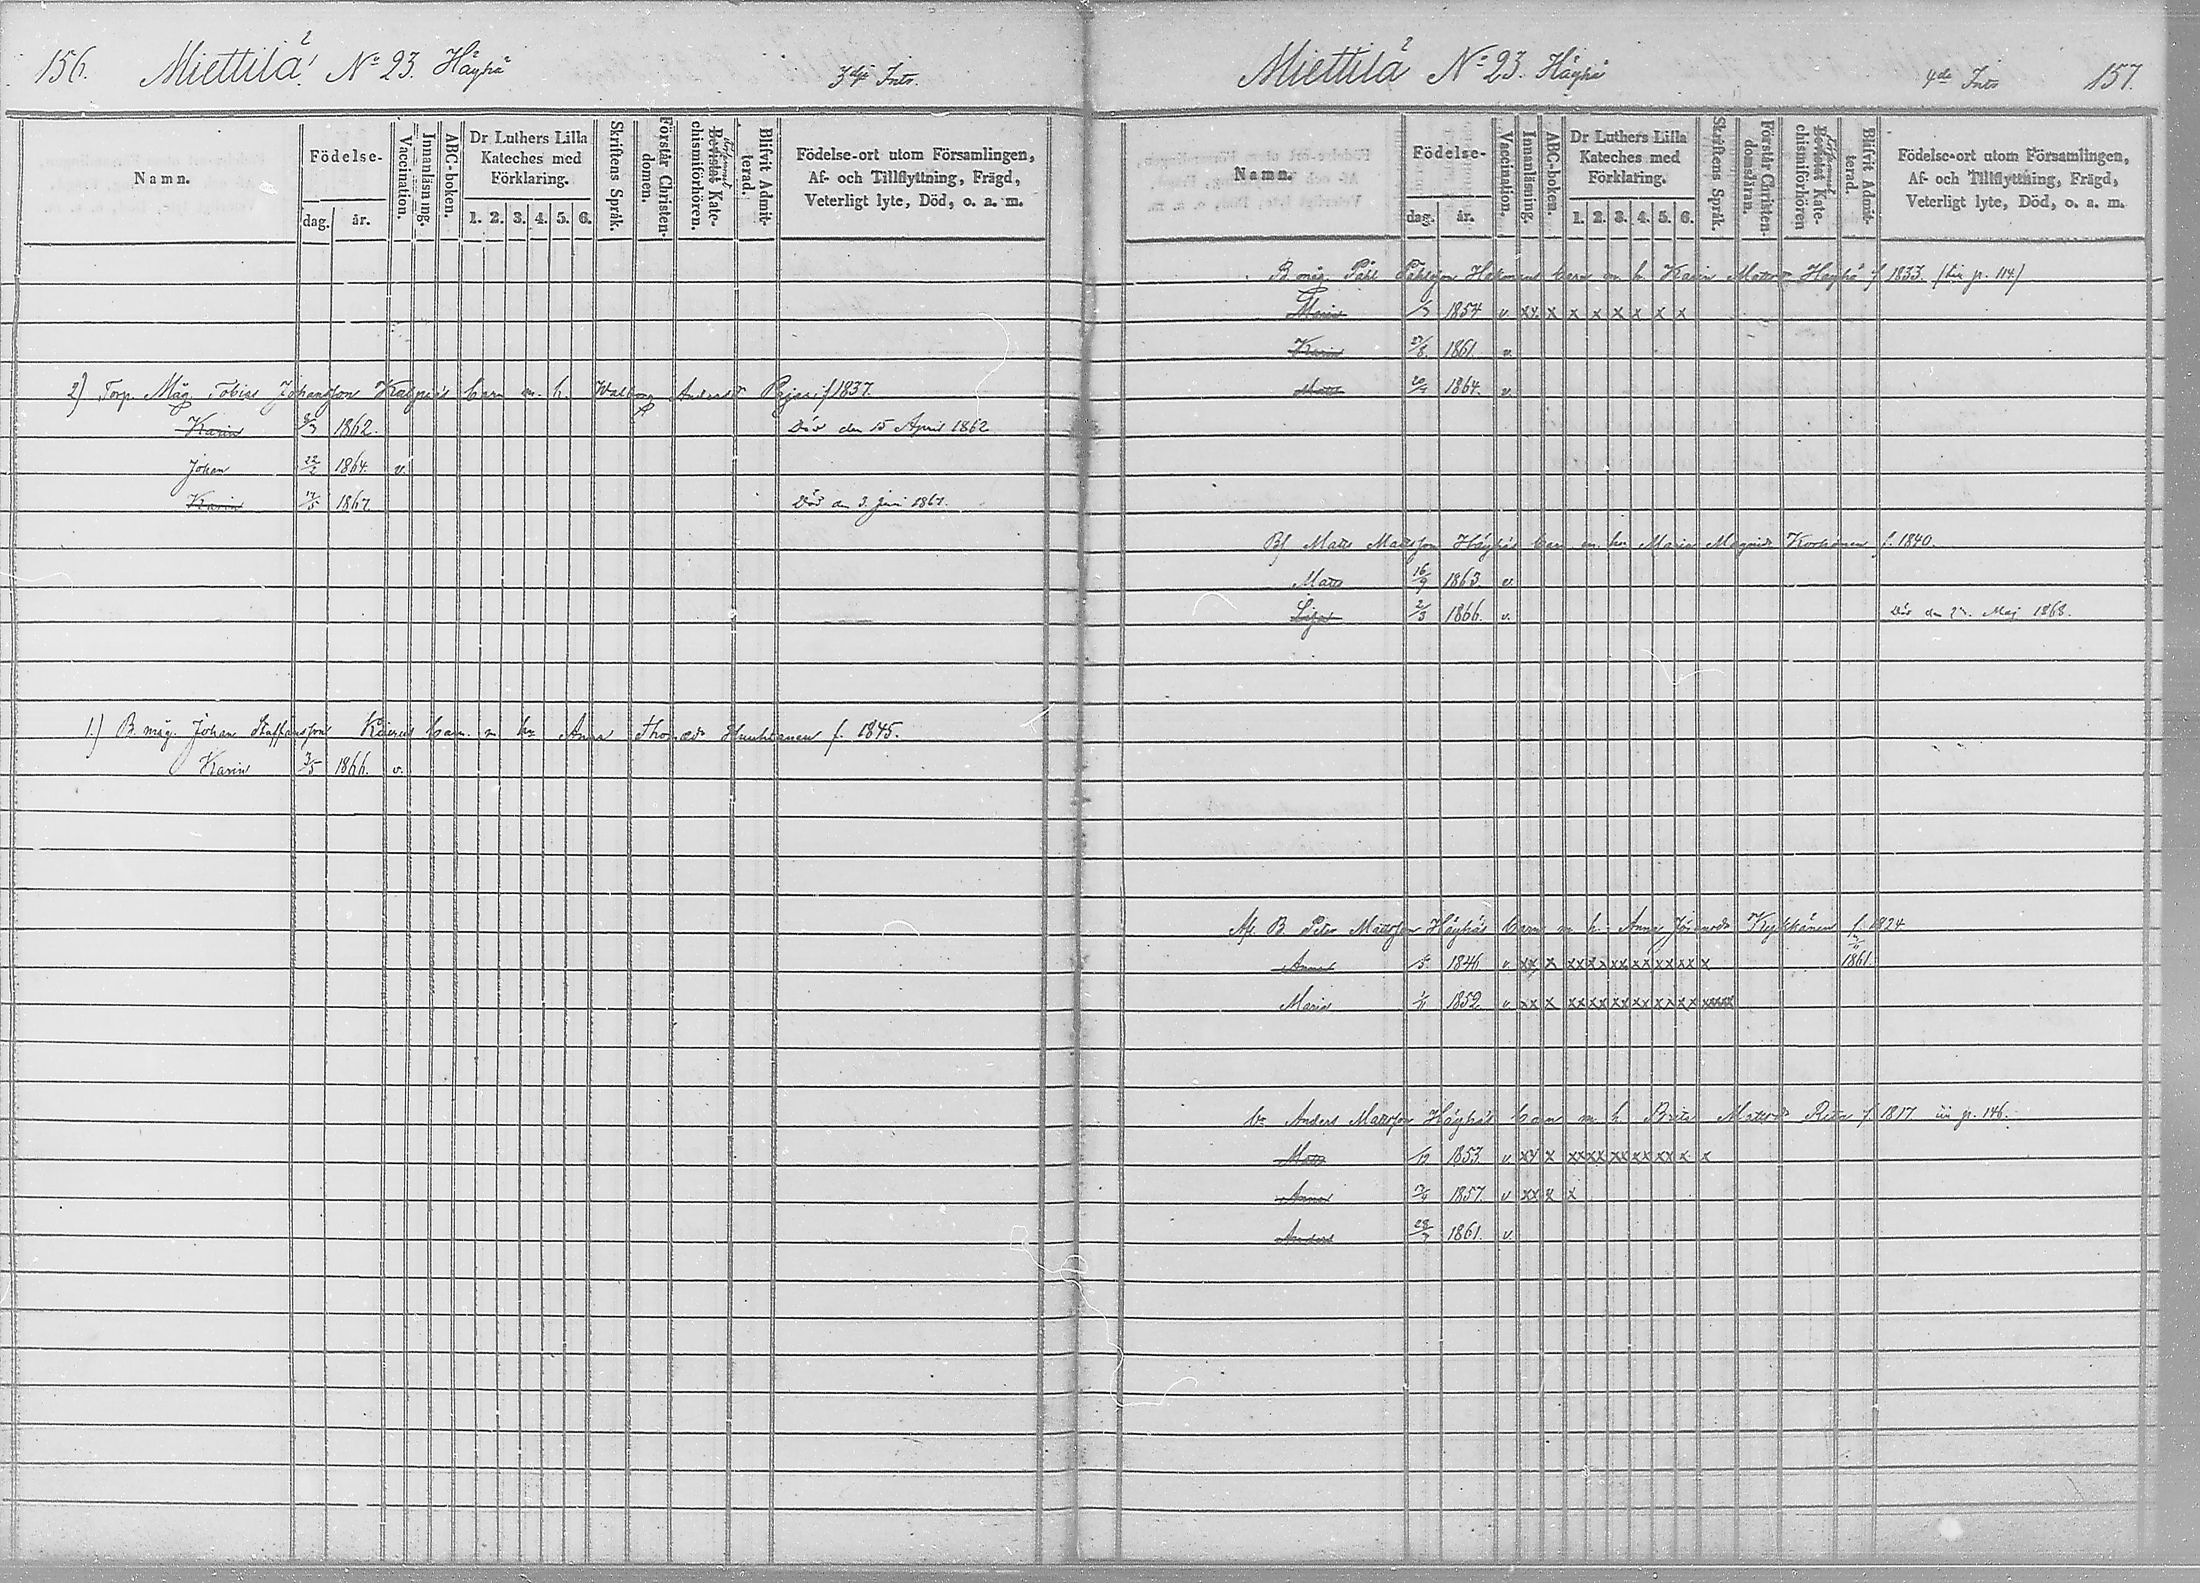 156. Miettilä N:o 23. Häyhä
Namn.
Födelse-
dag. år.
Vaccination.
Innanläsning.
ABC-boken.
Dr Luthers Lilla
Kateches med
Förklaring.
1. 2. 3. 4. 5. 6.
Skriftens Språk.
Förstår Christen-
domen.
Bevistat Kate-
chismiförhören.
Blifvit Admit-
terad.
Födelse-ort utom Församlingen,
Af- och Tillflyttning, Frägd,
Veterligt lyte, Död, o. a. m.
2) Torp. Måg Tobias Johansson barn m. h. Walborg Andersd:r f 1837.
Karin 1862. Död den 15 April 1862
Johan 22/2 1864. v.
Karin 17/5 1867. Död den 3. Juni 1867.
1.) B. måg. Johan Staffansson barn m. h. Anna Thomasd:r f. 1845.
Karin 1866. v.
Miettilä N:o 23. Häyhä 4de 157.
Namn.
Födelse-
dag. år.
Vaccination.
Innanläsning.
ABC-boken.
Dr Luthers Lilla
Kateches med
Förklaring.
1. 2. 3. 4. 5. 6.
Skriftens Språk.
Förstår Christen-
domsläran.
Bevistat Kate-
chismiförhören
Blifvit Admit-
terad.
Födelse-ort utom Församlingen,
Af- och Tillflyttning, Frägd,
Veterligt lyte, Död, o. a. m.
B. måg. Påhl Påhlsson barn m. h. Karin Mattsd:r Häyhä f 1833. p. 114.)
Maria 1854 v. xx. x x x x x x x
Karin 1861. v.
Matts 1864. v.
B. Matts Mattsson Häyhäs barn m. h. Maria Magnid. Korhonen f. 1840.
Matts 16/9 1863. v.
Lisa 2/3 1866. v. Död den Maj 1868.
Afl. B. Peter Mattsson Häyhäs barn m. h. Anna f. 1824
Anna 1846. v. xx x xx xx xx xx xx xx x 1861.
Maria 1852. v. xx x xx xx xx xx xx xx xxxxx
Anders Mattsson Häyhäs barn m. h. Brita Mattsd:r f 1817 p. 146.
Matts 1853. v. xx x xx xx xx xx xx x x
Anna 1857. v xx x x
Anders 1861. v.